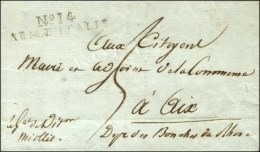 Nº 14
ARM. D'ITALIE
Aux Citoyens
Maire et adjoint de la Commune
5
à Aix
Dept des Bouches du Rhone
Miollis